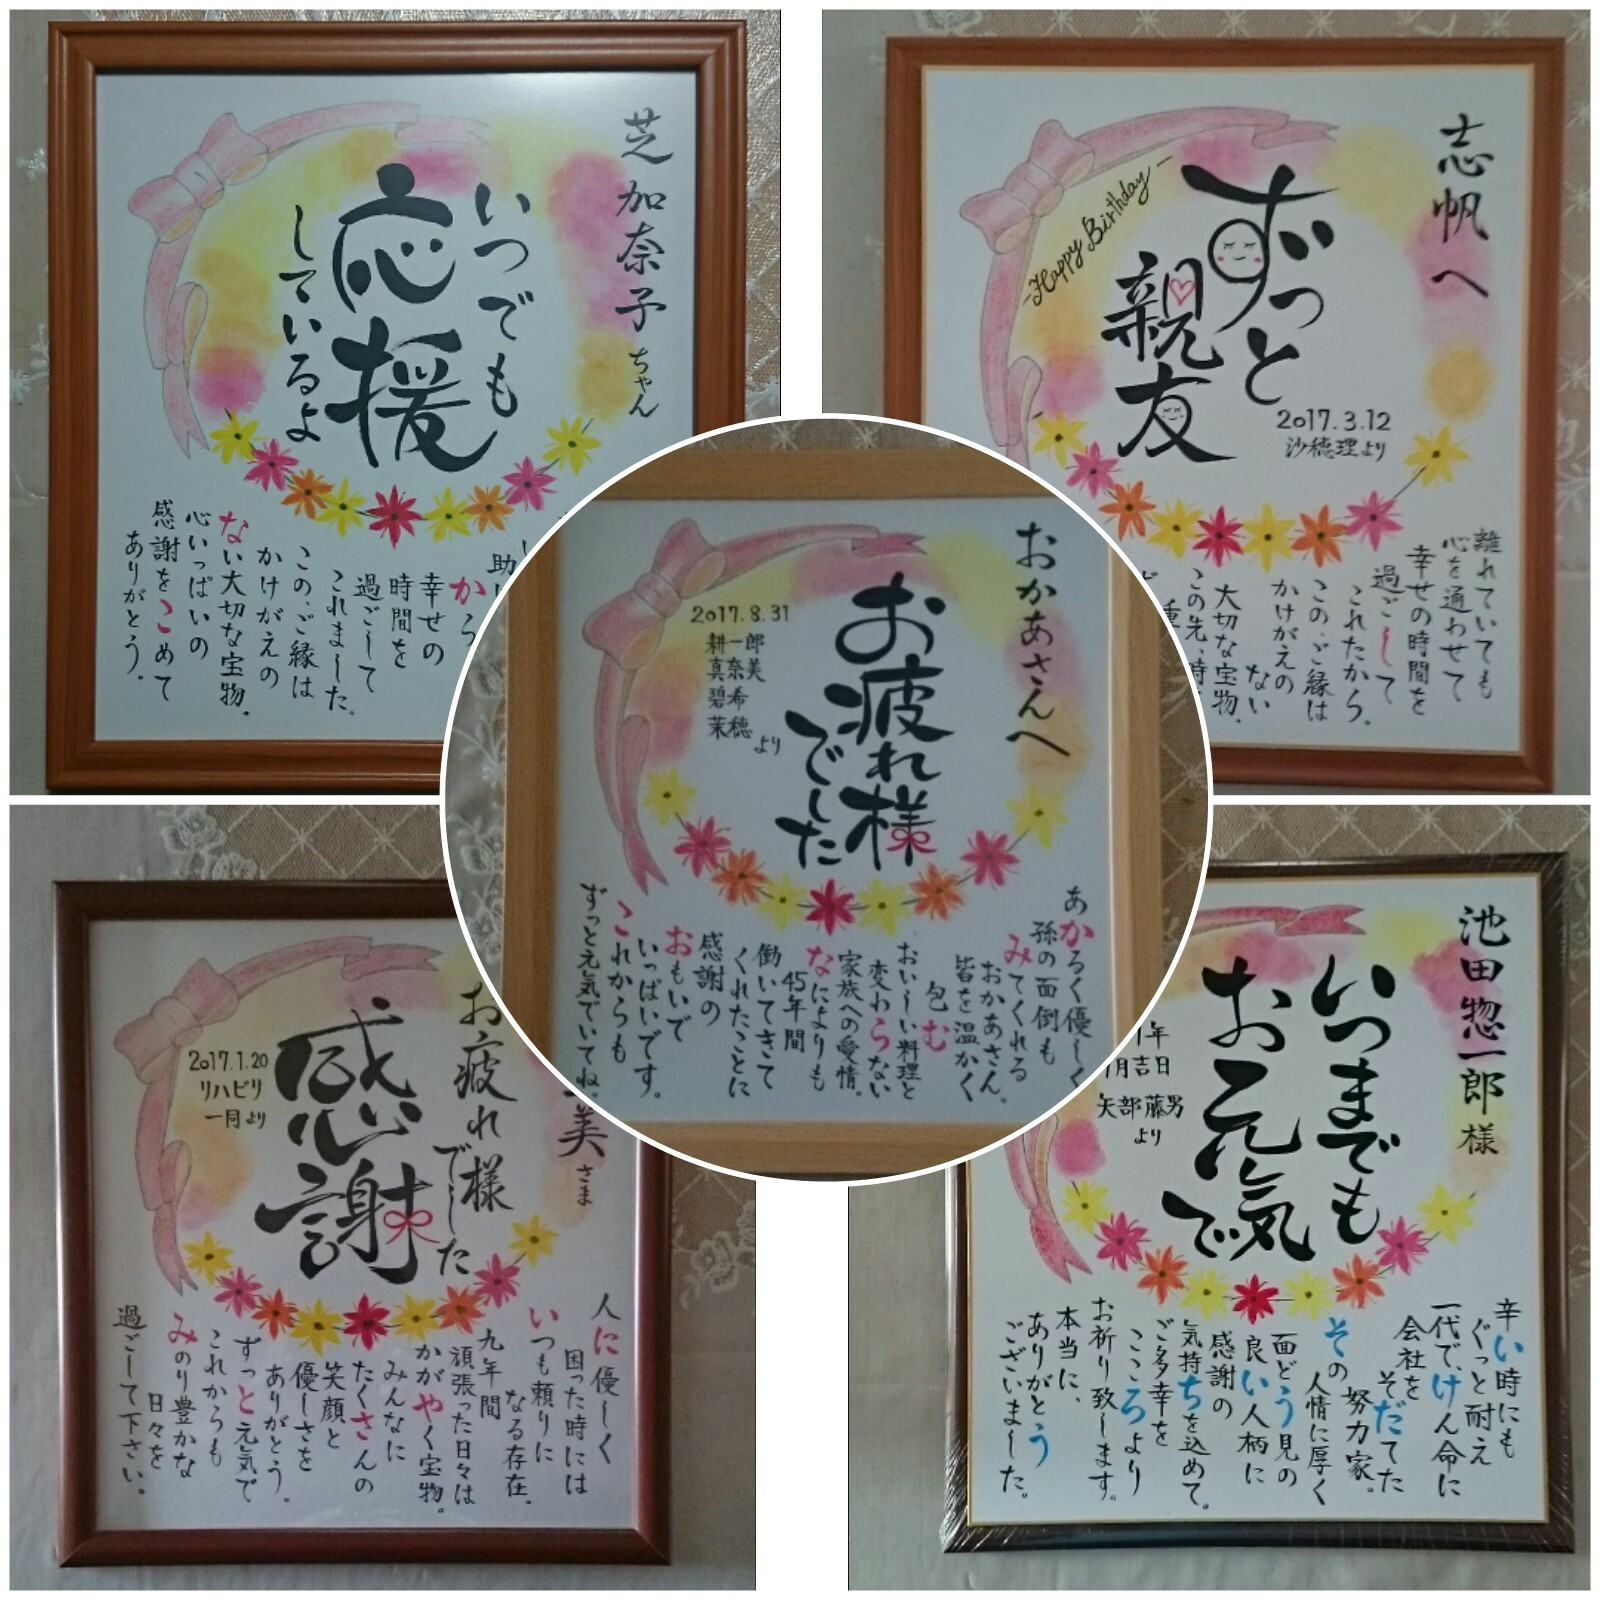 芝加奈子ちゃん
いつでも
応援
しているよ
から
幸せの
時間を
過ごして
これました。
この、ご縁は
かけがえの
ない大切な宝物。
心いっぱいの
感謝をこめて
ありがとう。
志帆へ
-Happy Birthday-
ずっと
親友
2017.3.12
沙穂理より
離れていても
心を通わせて
幸せの時間を
過ごして
これたから。
この、ご縁は
かけがえの
ない
大切な宝物。
この先、時
おかあさんへ
お疲れ様
でした
2017.8.31
耕一郎
真奈美
碧希
茉穂
より
あかるく優しく
孫の面倒も
みてくれる
おかあさん。
皆を温かく
包む
おいしい料理と
変わらない
家族への愛情。
なによりも
45年間
働いてきて
くれたことに
感謝の
おもいで
いっぱいです。
これからも
ずっと元気でいてね。
美さま
お疲れ様
でした
感謝
2017.1.20
リハビリ
一同より
人に優しく
困った時には
いつも頼りに
なる存在。
九年間
頑張った日々は
かがやく宝物。
みんなに
たくさんの
笑顔と
優しさを
ありがとう。
ずっと元気で
これからも
みのり豊かな
日々を
過ごして下さい。
池田惣一郎様
いつまでも
お元気
で
年
月吉日
矢部藤男
より
辛い時にも
ぐっと耐え
一代で、けん命に
会社を
そだてた
努力家。
その人情に厚く
面どう見の
良い人柄に
感謝の
気持ちを込めて。
ご多幸を
こころより
お祈り致します。
本当に、
ありがとう
ございました。